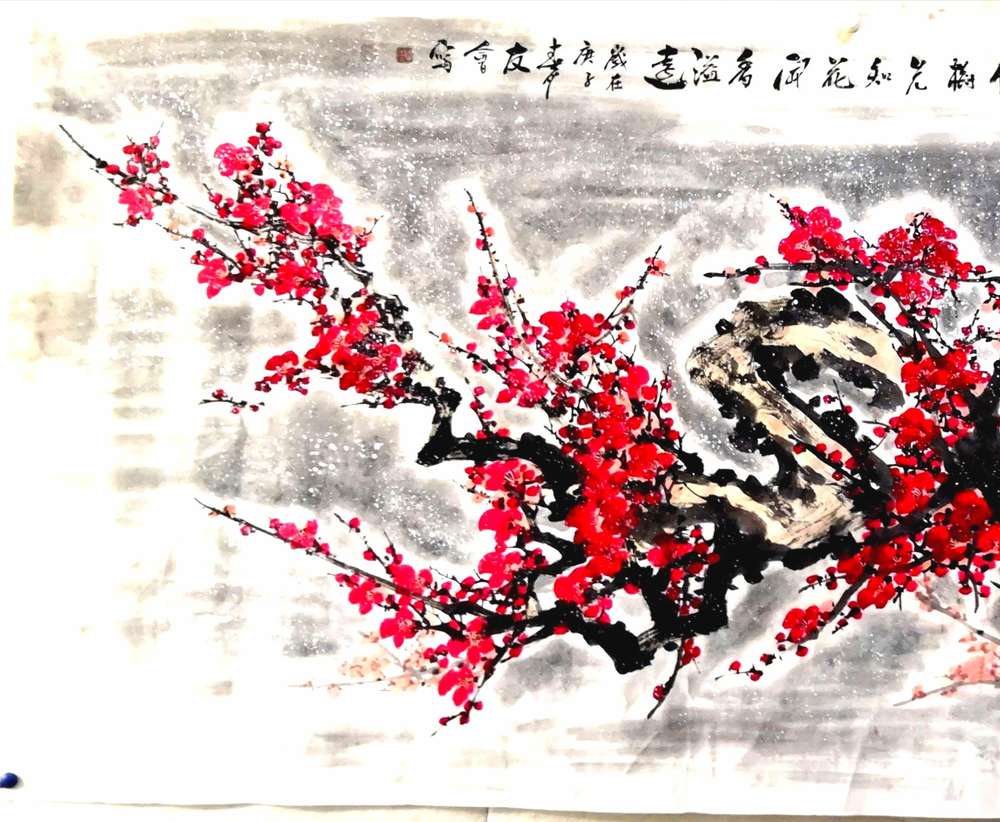 樹先知花開香溢遠
歲在
庚子
春月
友會寫